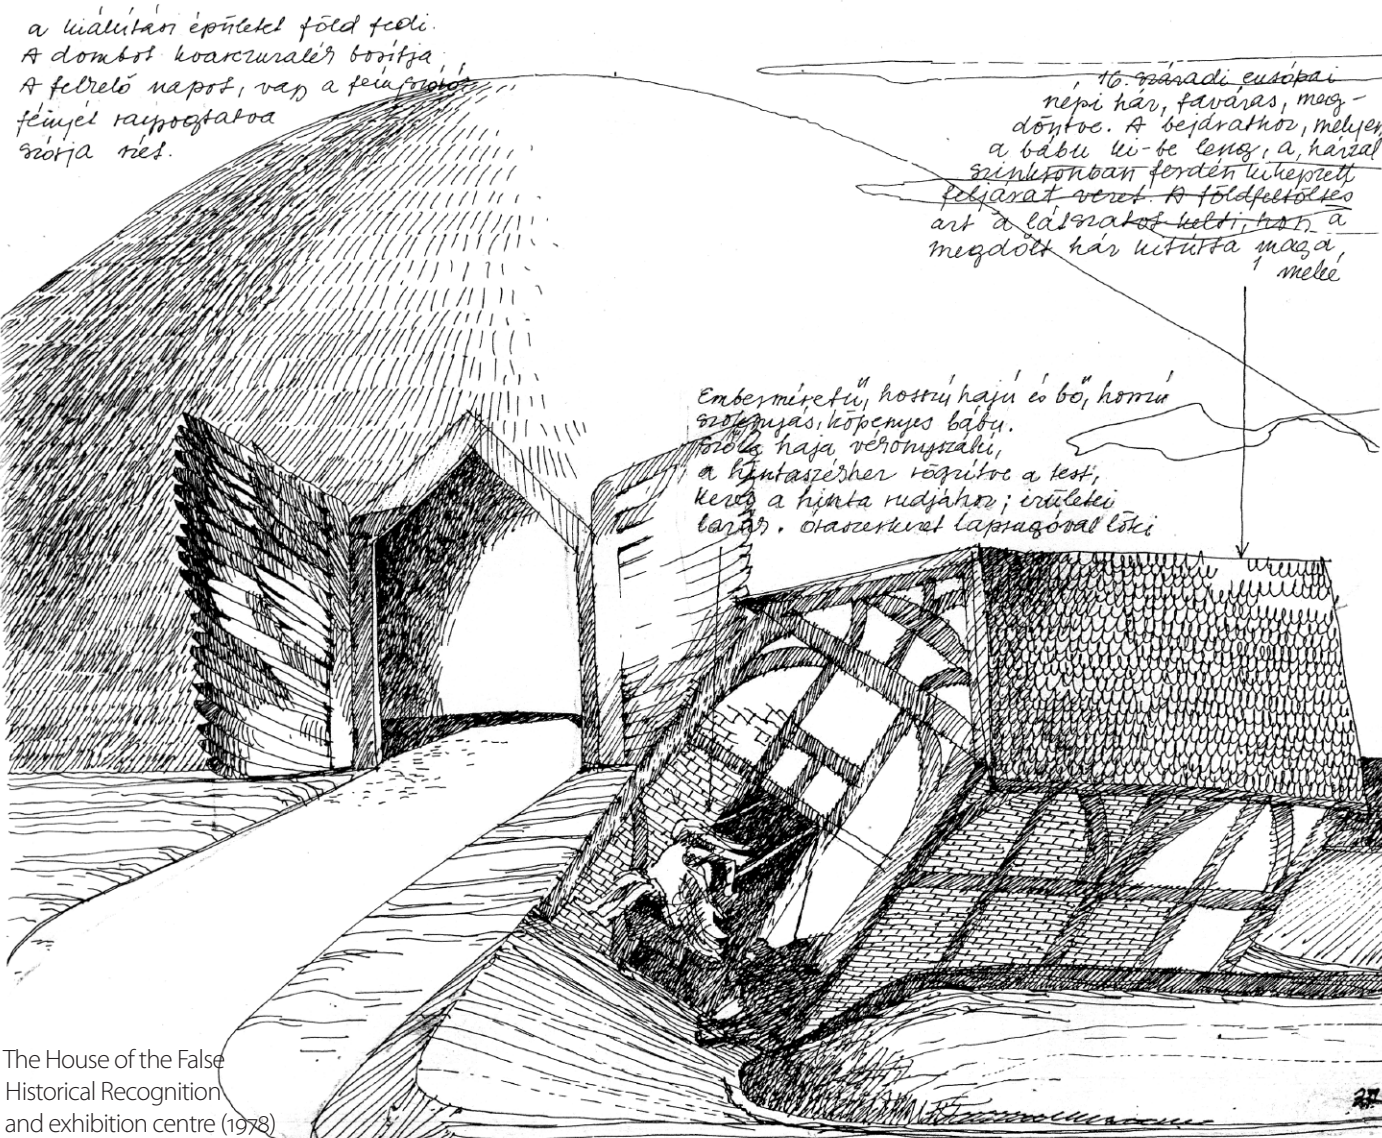 a kiállítási épületet föld fedi.
A dombot kvarczúzalék borítja,
A felkelő napot, vagy a fényszóró
fényét ragyogtatva
szórja szét.
16. századi európai
népi ház, favázas, meg-
döntve. A bejárathoz, melyen
a bábu ki-be leng, a házzal
szinkronban ferdén kiképzett
feljárat vezet. A földfeltöltés
azt a látszatot kelti, hogy a
megdőlt ház kitúrta maga
mellé
Emberméretű, hosszú hajú és bő, hosszú
szoknyás, köpenyes bábu.
Szőke haja vékony szálú,
a hintaszékhez rögzítve a test,
keze a hinta rudjához; ízületei
lazák. óraszerkezet laprugóval löki
The House of the False
Historical Recognition
and exhibition centre (1978)